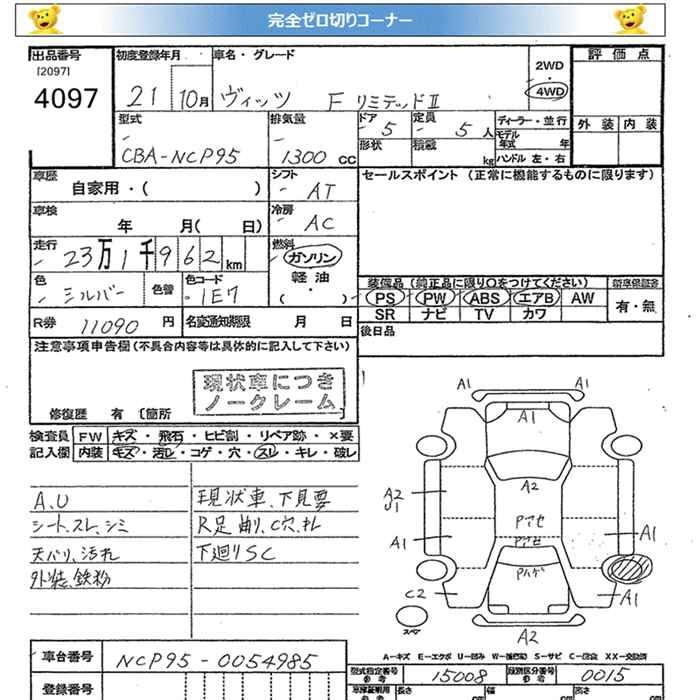 完全ゼロ切りコーナー
出品番号 初度登録年月 車名・グレード 2WD・4WD 評価点
[2097]
4097 21 10月 ヴィッツ F リミテッドⅡ
型式 排気量 ドア 定員 ディーラー・並行 外装 内装
CBA-NCP95 1300 cc 5 5人 モデル年式 年
形状 積載 kg ハンドル 左・右
車歴 自家用・( ) シフト AT セールスポイント (正常に機能するものに限ります)
車検 年 月( 日) 冷房 AC
走行 23万1千962 km 燃料 ガソリン
軽油
( )
色 シルバー 色替 色コード 1E7
装備品 (純正品に限り○をつけてください) 新車保証書
PS PW ABS エアB AW 有・無
SR ナビ TV カワ
R券 11090 円 名変通知期限 月 日 後日品
注意事項申告欄(不具合内容等は具体的に記入して下さい)
現状車につき
ノークレーム
修復歴 有 〔箇所
検査員 FW キズ・飛石・ヒビ割・リペア跡・×要
記入欄 内装 キズ・汚レ・コゲ・穴・スレ・キレ・破レ
A.U 現状車、下見要
シート、スレ、シミ R足曲り、C穴、キレ
天バリ、汚れ 下廻りSC
外装、鉄粉
A1 A1
A1
A2
A2
U1
Pアセ
A1 Pアセ A1
Pハゲ
C2 A1
スペア
A2
A-キズ E-エクボ U-凹み W-補修跡 S-サビ C-腐食 XX-交換済
車台番号 NCP95-0054985 型式指定番号 参考 15008 類別区分番号 参考 0015
登録番号 車庫証明用 参考 長さ cm 幅 cm 高さ cm